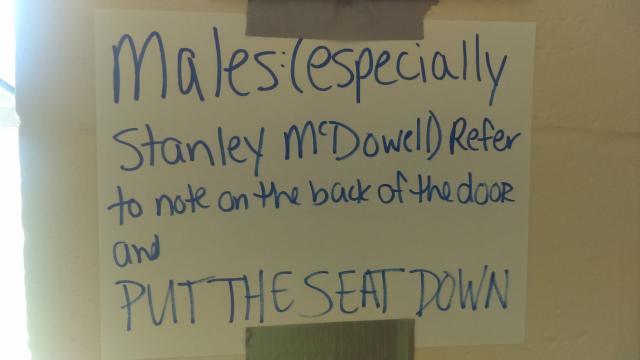 Males:(especially
Stanley McDowell) Refer
to note on the back of the door
and
PUT THE SEAT DOWN